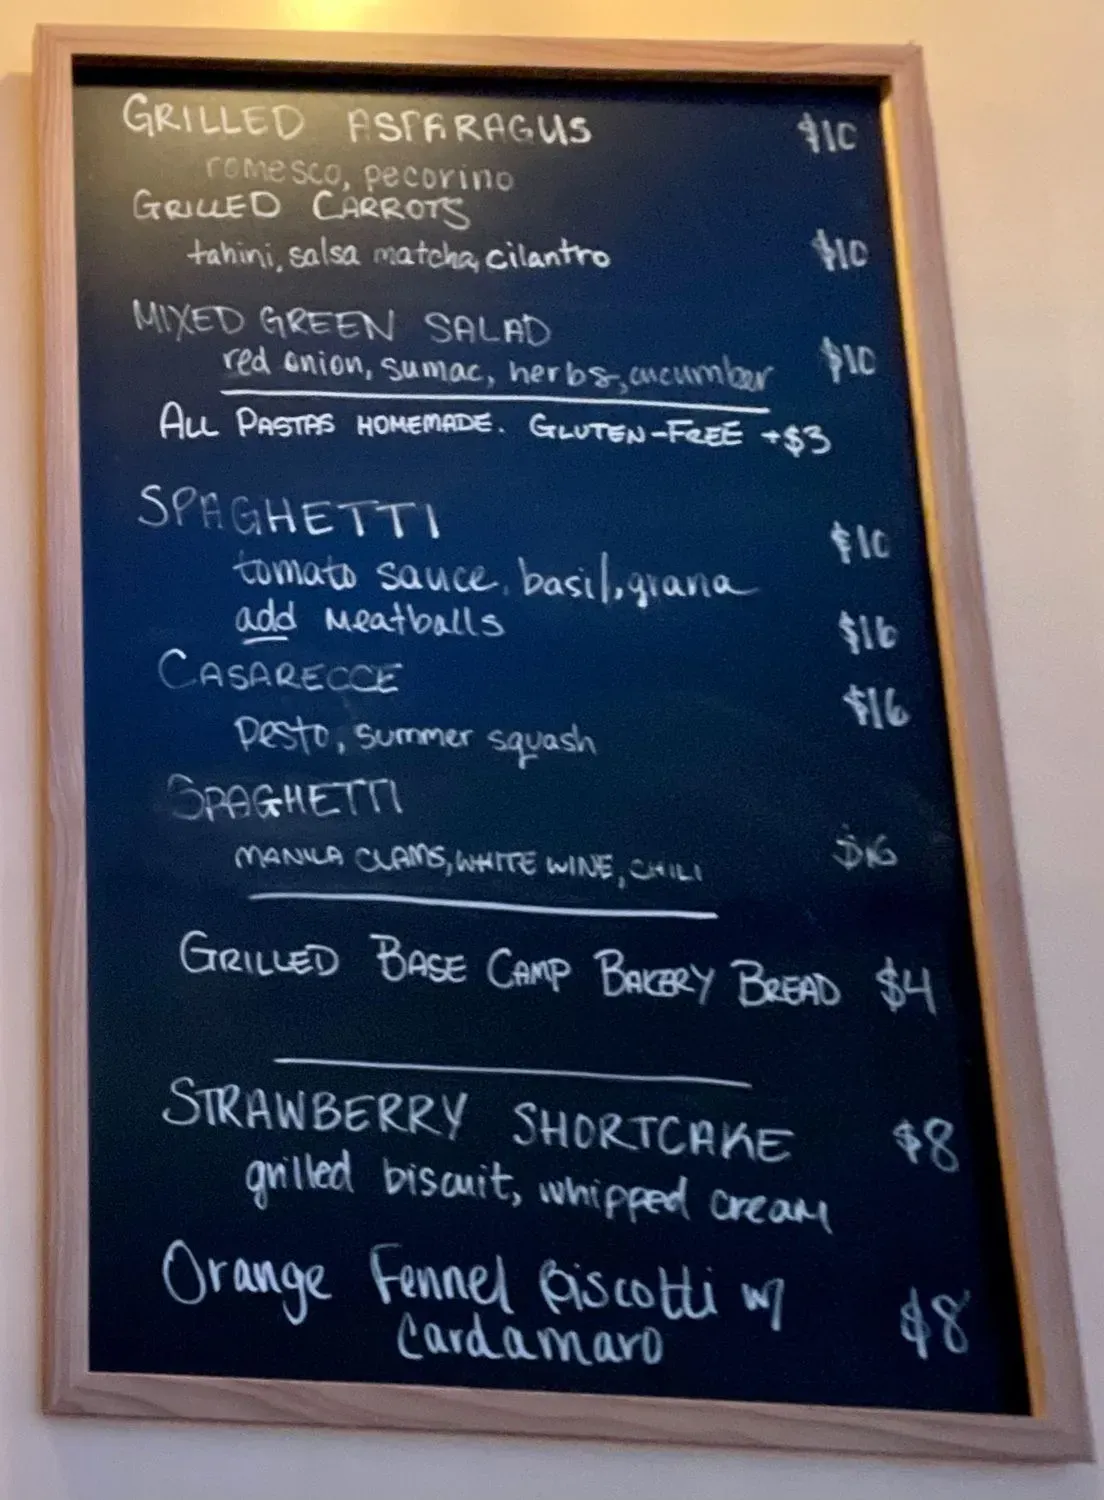 GRILLED ASPARAGUS $10
romesco, pecorino
GRILLED CARROTS
tahini, salsa matcha, cilantro $10
MIXED GREEN SALAD
red onion, sumac, herbs, cucumber $10
ALL PASTAS HOMEMADE. GLUTEN-FREE +$3
SPAGHETTI $10
tomato sauce, basil, grana
add meatballs $16
CASARECCE $16
pesto, summer squash
SPAGHETTI
MANILA CLAMS, WHITE WINE, CHILI $16
GRILLED BASE CAMP BAKERY BREAD $4
STRAWBERRY SHORTCAKE $8
grilled biscuit, whipped cream
Orange Fennel Biscotti w/ $8
Cardamaro